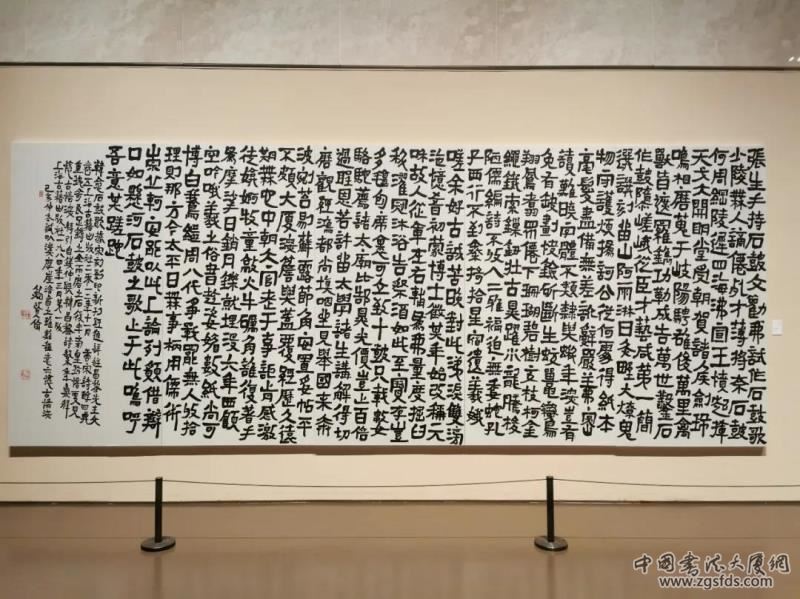 張生手持石鼓文勸我試作石鼓歌
少陵無人謫仙死才薄將奈石鼓
何周綱陵遲四海沸宣王憤起揮
天戈大開明堂受朝賀諸侯劍珮
鳴相磨蒐于岐陽騁雄俊萬里禽
獸皆遮羅鐫功勒成告萬世鑿石
作鼓隳嵯峨從臣才藝咸第一簡
選譔刻留山阿雨淋日炙野火燎鬼
物守護煩撝訶公從何處得紙本
毫髮盡備無差訛辭嚴義密
讀難曉字體不類隸與蝌年深豈
免有缺畫快劍斫斷生蛟鼉鸞
翔鳳翥眾仙下珊瑚碧樹交枝柯金
繩鐵索鎖鈕壯古鼎躍水龍騰梭
陋儒編詩不收入二雅褊迫無委蛇孔
子西行不到秦掎摭星宿遺羲娥
嗟余好古誠苦晚對此涕淚雙滂
沱憶昔初蒙博士徵其年始改稱元
和故人從軍在右輔為我量度掘臼
科濯冠沐浴告祭酒如此至寶存豈
多氈包席裹可立致十鼓只載數
駱駝薦諸太廟比郜鼎光價豈止百倍
過聖恩若許留太學諸生講解得切
磋觀經鴻都尚填咽坐見舉國來奔
波剜苔剔蘚露節角安置妥帖平
不頗大廈深簷與蓋覆經歷久遠
期無佗中朝大官老于事詎肯感激
徒媕婀牧童敲火牛礪角誰復著手
為摩挲日銷月鑠就埋沒六年西顧
空吟哦羲之俗書趁姿媚數紙尚可
博白鵝繼周八代爭戰罷無人收拾
理則那方今太平日無事柄用儒術
崇丘軻安能以此上論列願借辯
口如懸河石鼓之歌止于此嗚呼
吾意其蹉跎
中国书法大厦网
www.zgsfds.com